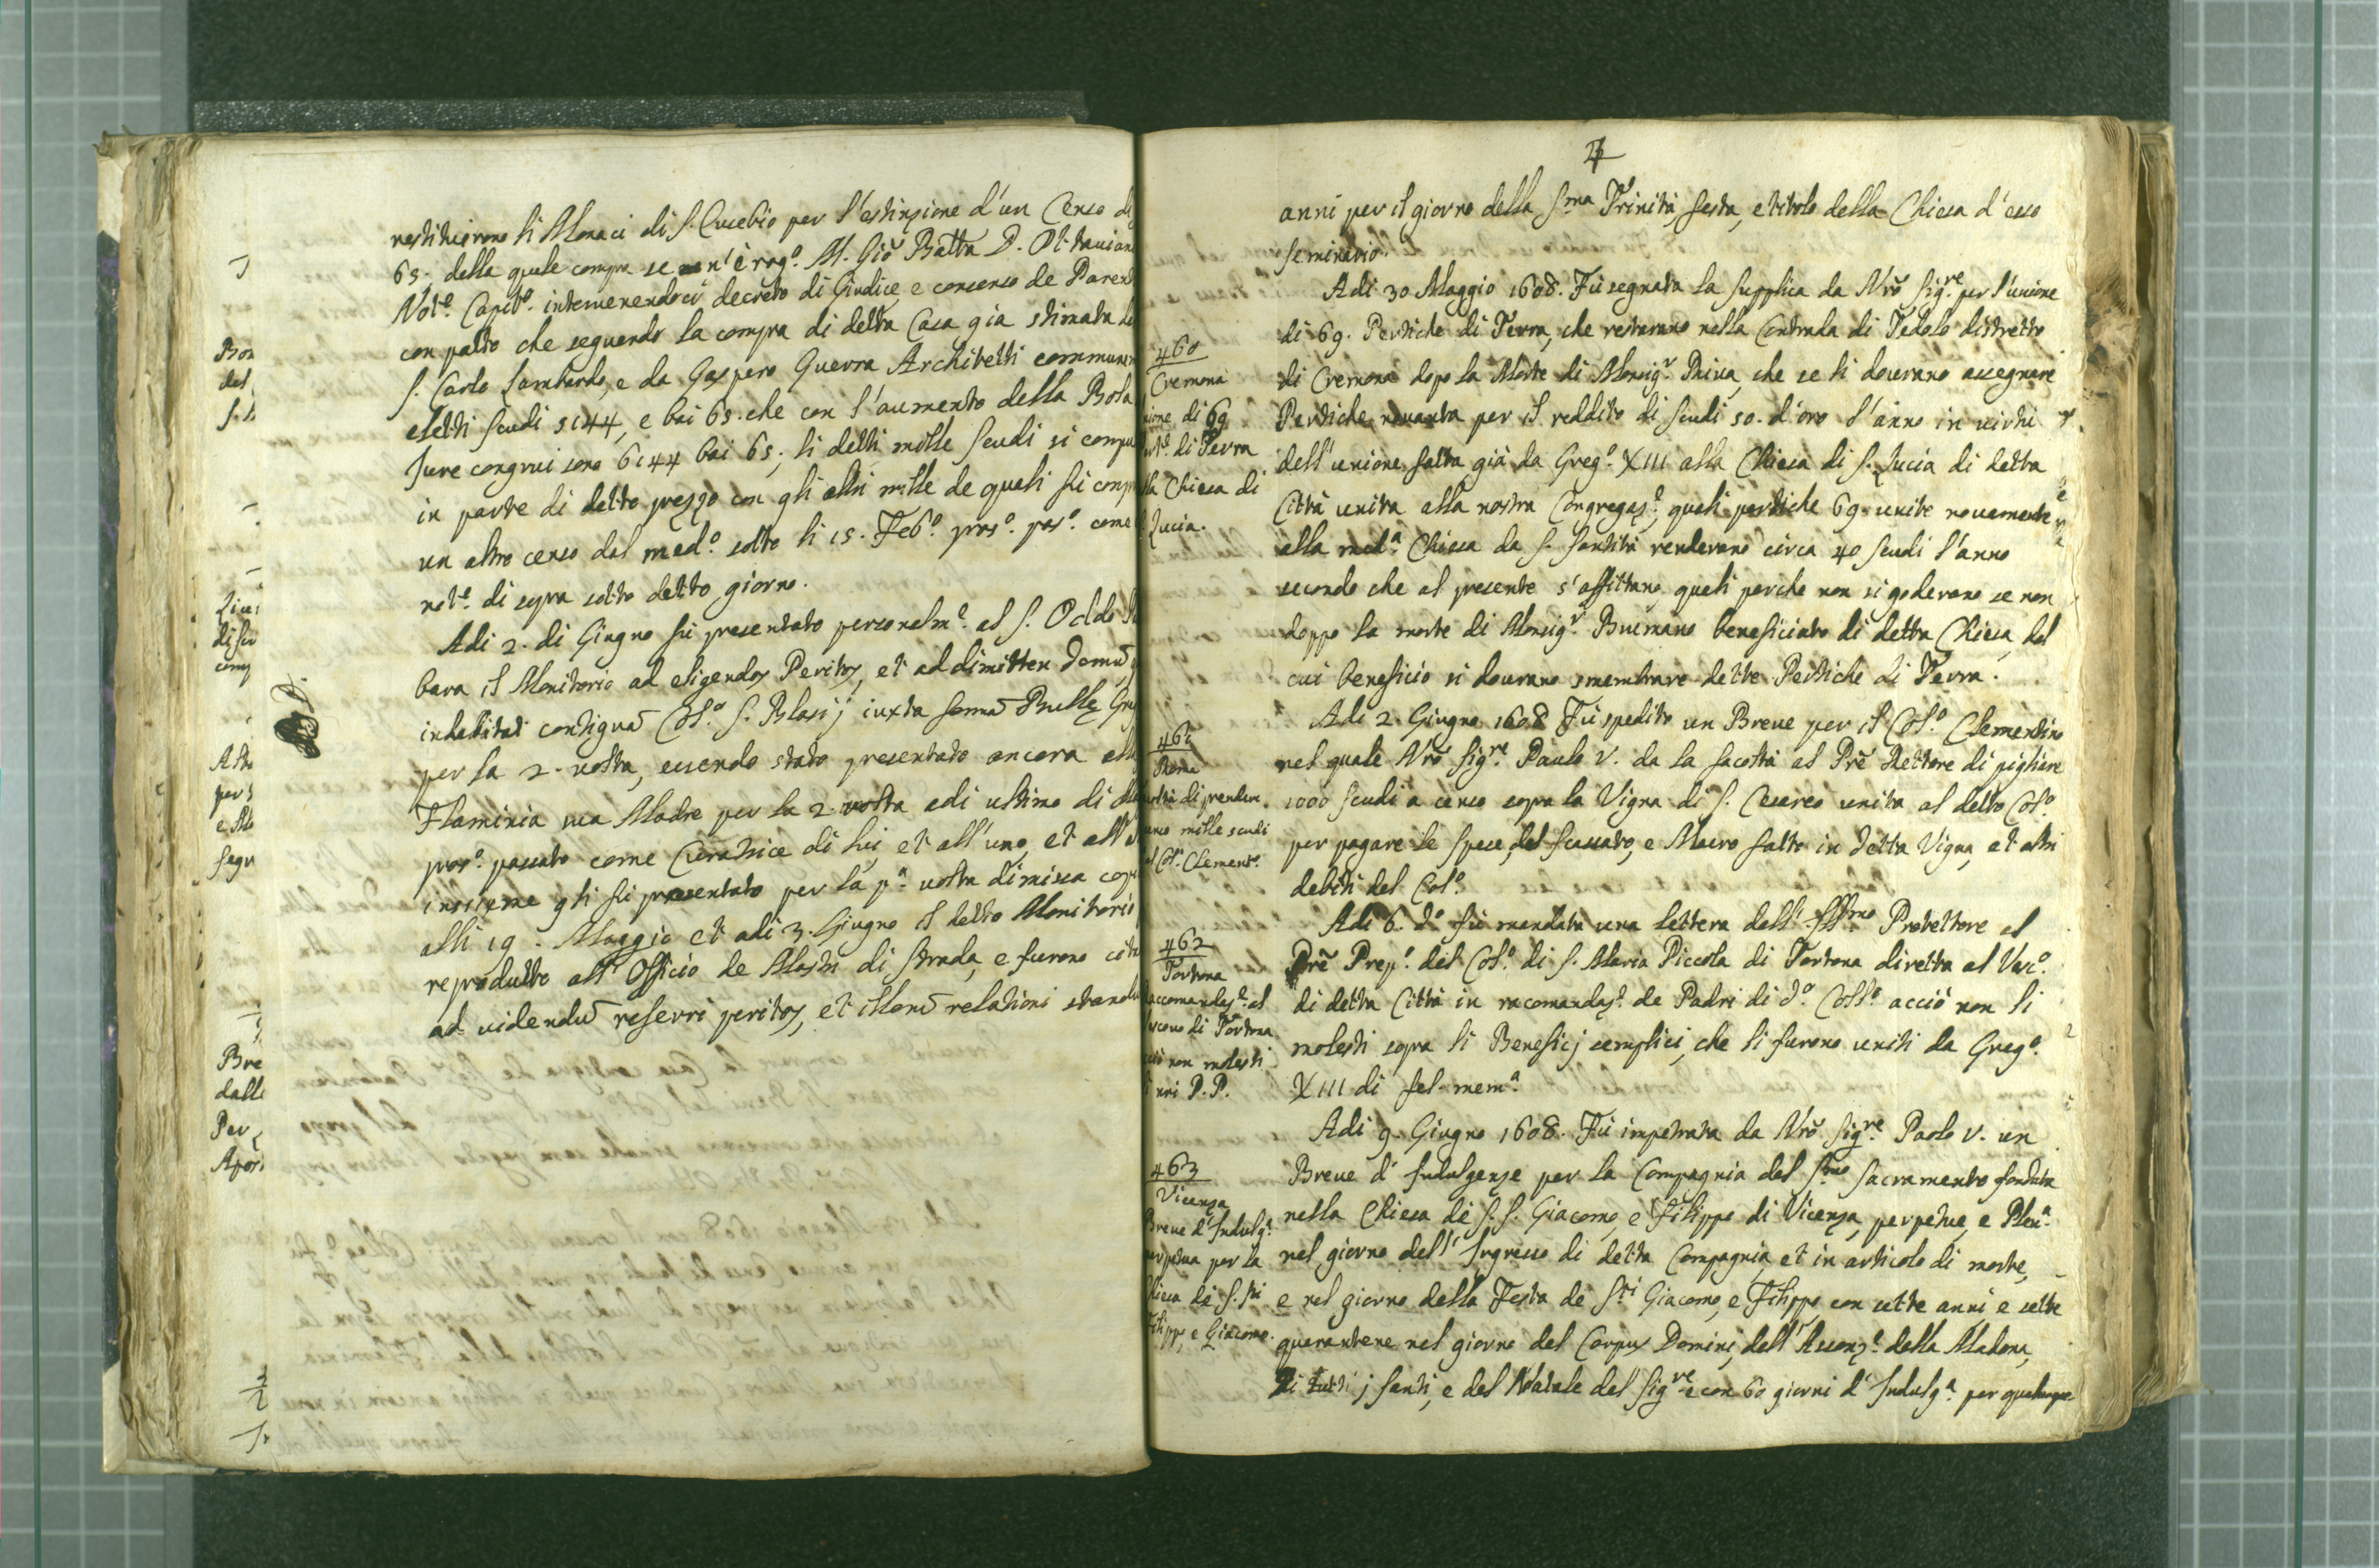 restituirono li Monaci di S. Eusebio per l'estinzione d'un Censo di
65; della quale compra se n'è rog.o M. Gio Batta D. Ottaviano
Not.o Capit.o intervenendoci decreto di Giudice, e consenso de Parenti
con patto che seguendo la compra di detta Casa gia stimata da
S. Carlo Lombardo, e da Gaspero Guerra Architetti communem
eletti scudi 5144, e bai 65. che con l'aumento della Bola
Jure congrui sono 6144 bai 65; li detti mille scudi si compu
in parte di detto prezzo con gli altri mille de quali si comp
un altro censo dal med.o sotto li 15. Feb.o pros.o pas.o come
not.o di sopra sotto detto giorno.
Adi 2. di Giugno fu presentato personalm.e al S. Oddo
bara il Monitorio ad eligendos Peritos, et ad dimitten domũ
inhabitat contiguã Col.o S. Blasij iuxta formã Bullę Gre
per la 2. volta, essendo stato presentato ancora alla
Flaminia sua Madre per la 2. volta adi ultimo di
pros.o passato come Curatrice di lui, et all'uno, et all'
insieme gli fu presentato per la p.a volta dimissa copia
alli 19. Maggio et adi 3. Giugno il detto Monitorio
reprodutto all'Officio de Mastri di strada, e furono cita
ad videndũ referri peritos, et illorũ relationi
Bre
dalle
Per
Apos
anni per il giorno della S.ma Trinità, festa, e titolo della Chiesa d'esso
seminario.
460
Cremona
nione di 69
di Terra
lla Chiesa di
Lucia.
Adi 30 Maggio 1608. Fù segnata la supplica da Nrõ Sig.re per l'unione
di 69. Pertiche di Terra, che restarano nella Contrada di Fedolo distretto
di Cremona dopo la Morte di Monsig.r Picina, che se li dovrano assegnare
Pertiche novanta per il reddito di scudi 50. d'oro l'anno in virtù
dell'unione fatta già da Greg.o XIII alla Chiesa di S. Lucia di detta
Città unita alla nostra Congregaz.e, quali pertiche 69. unite novamente
alla med.a Chiesa da S. Santità renderano circa 40 scudi l'anno
secondo che al presente s'affittano, quali perche non si goderano se non
doppo la morte di Monsig.r Busmano beneficiato di detta Chiesa, dal
cui beneficio si dovrano smembrare dette Pertiche di Terra.
461
Roma
oltà di prender
enso mille scudi
al Col. Clement.o
Adi 2. Giugno 1608 Fù spedito un Breve per il Col.o Clementino
nel quale Nrõ Sig.re Paulo V. da la facoltà al Prẽ Rettore di pigliare
1000 scudi a censo sopra la Vigna di S. Cesareo unita al detto Col.o
per pagare le spese, del scassato, e Muro fatto in detta Vigna, et altri
debiti del Col.o
462
Tortona
accomandaz.e al
Vescovo di Tortona
acciò non molesti
li nri P.P.
Adi 6. d.o fù mandata una lettera dell'Ill.mo Protettore al
Prẽ Prep.o del Col.o di S. Maria Piccola di Tortona diretta al Vesc.o
di detta Città in racomandaz.e de Padri di d.o Coll.o acciò non li
molesti sopra li Beneficj semplici, che li furono uniti da Greg.o
XIII di fel. mem.a
463
Vicenza
Breve d'Indulg.e
perpetua per la
Chiesa de S. Sti
Filippo, e Giacomo.
Adi 9. Giugno 1608. Fù impetrata da Nrõ Sig.re Paolo V. un
Breve d'Indulgenze per la Compagnia del S.mo Sacramento fondata
nella Chiesa de S.S. Giacomo, e Filippo di Vicenza, perpetue, e Plen.a
nel giorno dell'Ingresso di detta Compagnia, et in articolo di morte,
e nel giorno della Festa de S.ti Giacomo, e Filippo con sette anni e sette
quarantene nel giorno del Corpus Domini, dell'Assonz.e della Madona,
Di tutti j Santi, e del Natale del Sig.re e con 60 giorni d'Indulg.a per qualunque